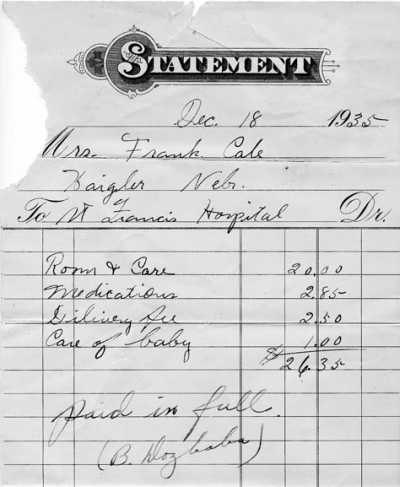 STATEMENT
Dec. 18 1935
Mrs. Frank Cale
Haigler Nebr.
To St Francis Hospital Dr.
Room & Care 20.00
Medications 2.85
Dilivery fee 2.50
Care of baby 1.00
$ 26.35
Paid in full.
(B. Dozbaba)